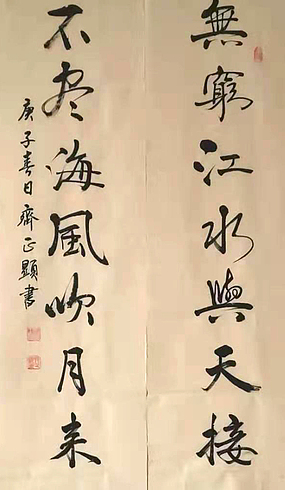 無窮江水與天接
不盡海風吹月來
庚子春日齊正顯書